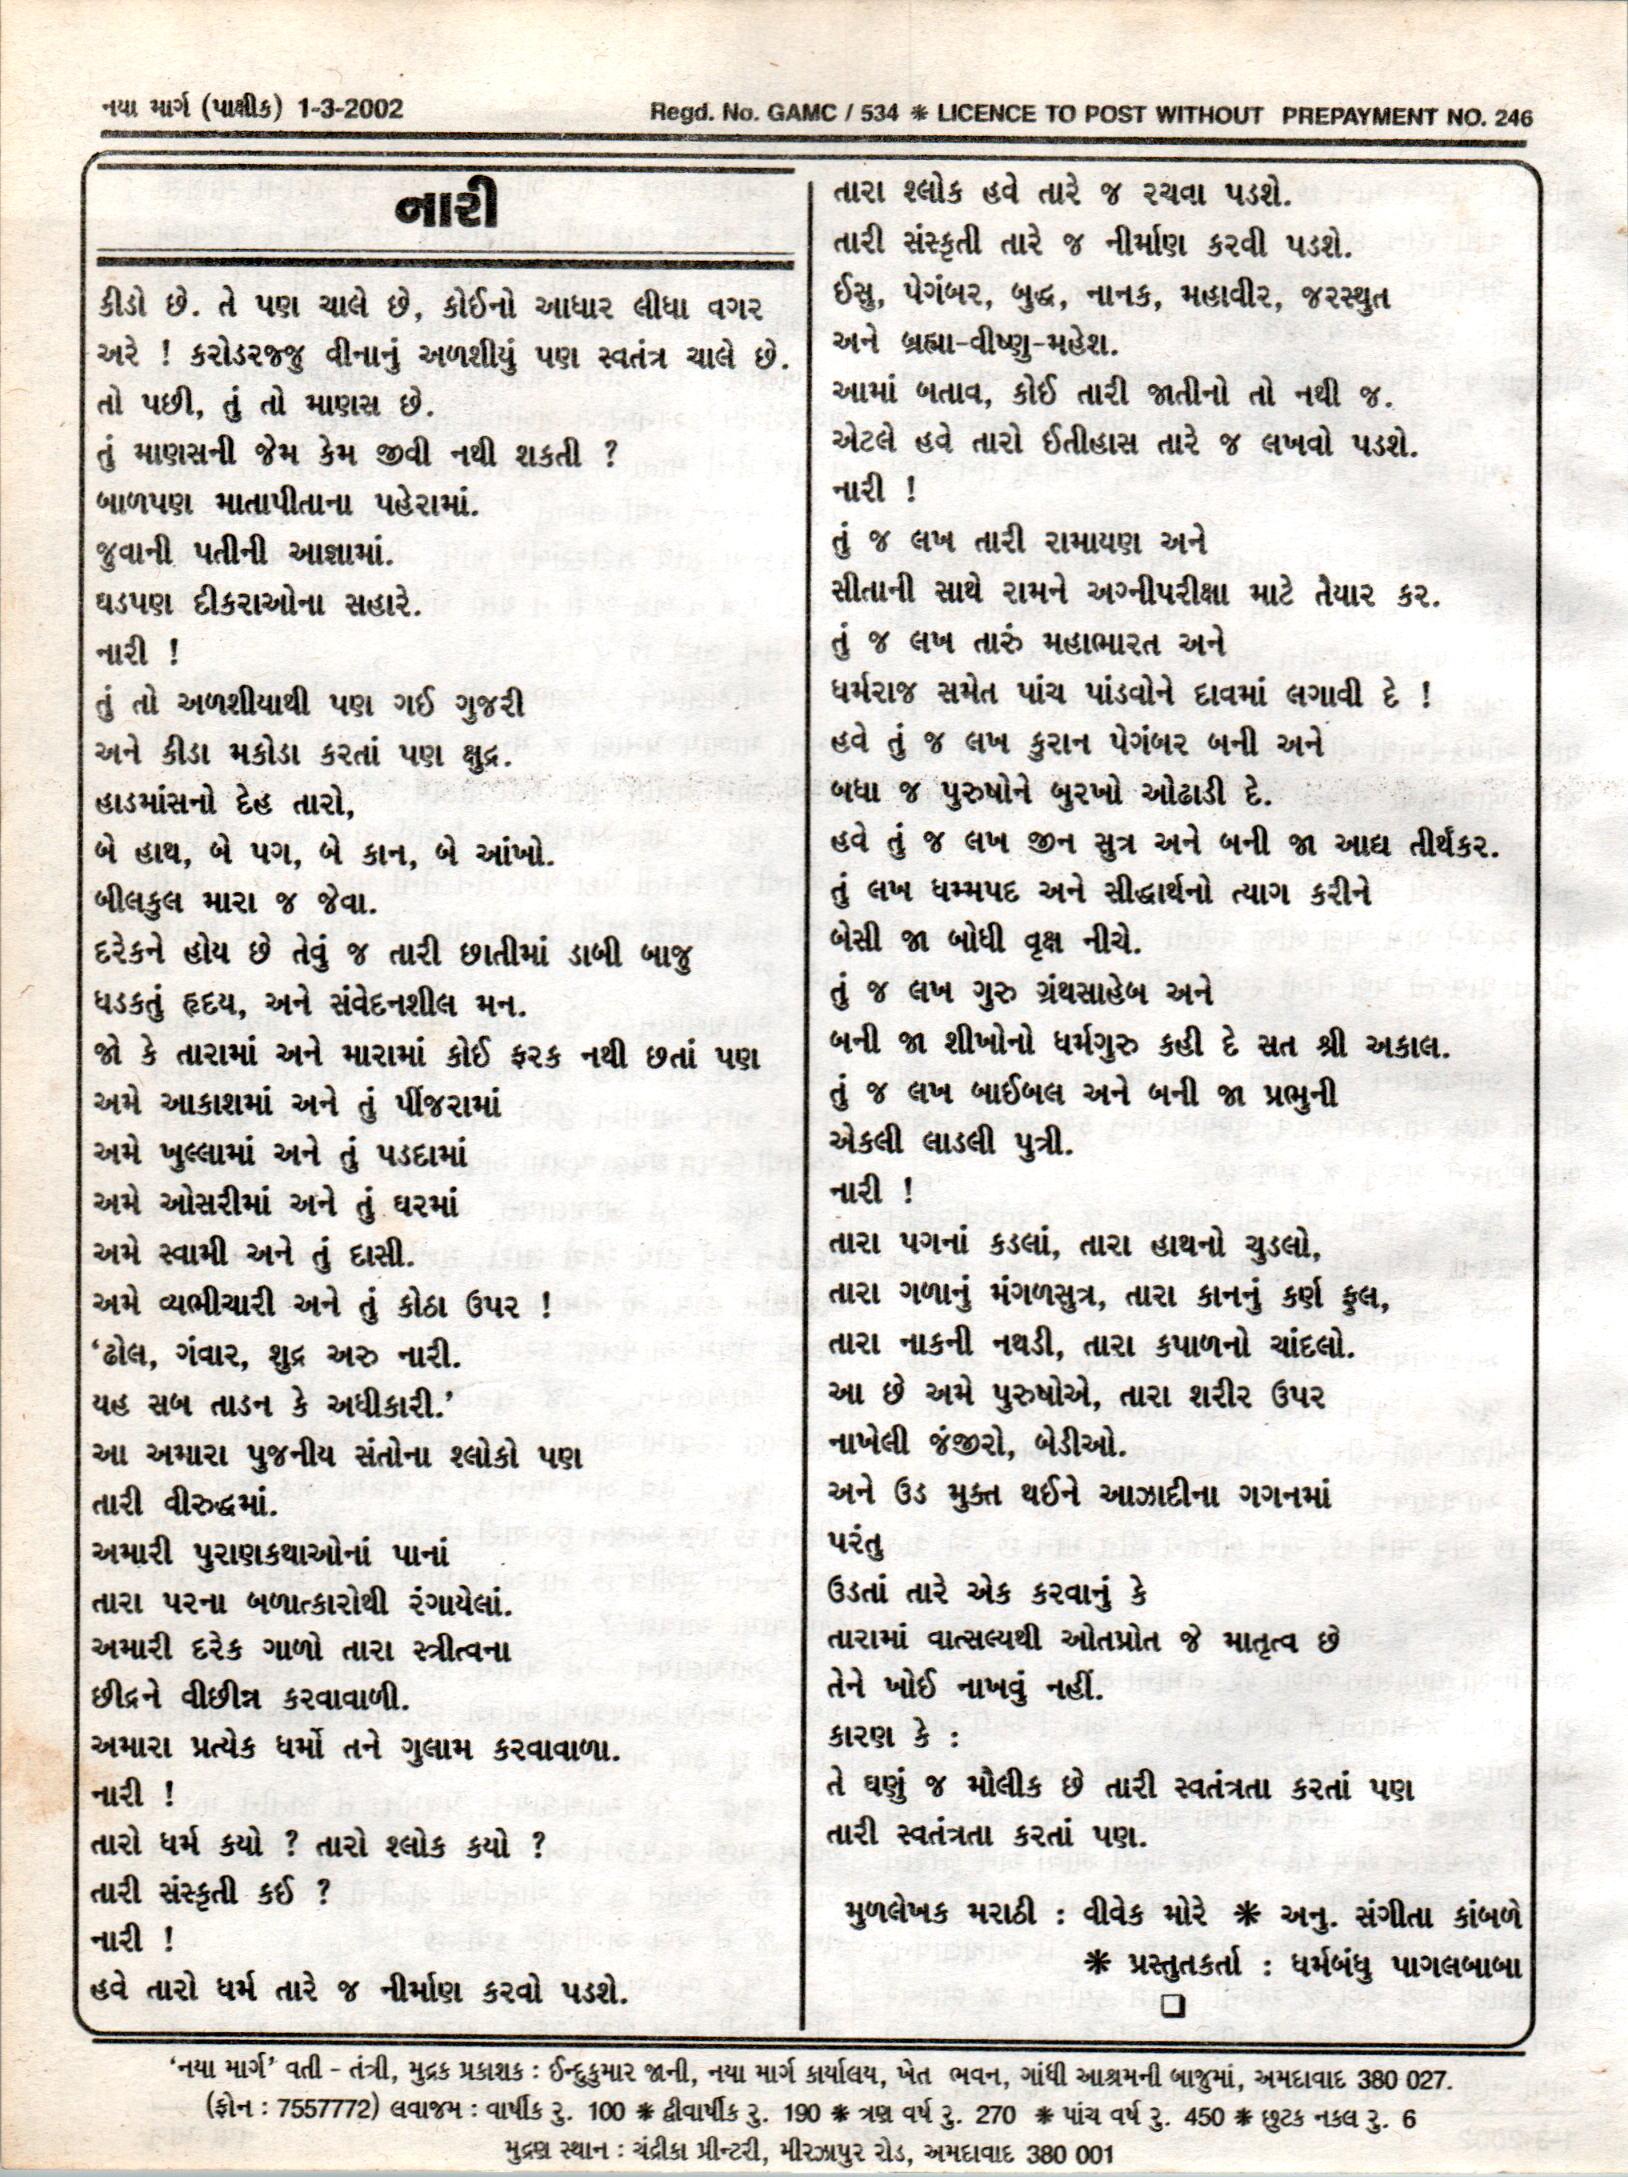 નયા માર્ગ (પાક્ષીક) 1-3-2002
Regd. No. GAMC / 534 ❋ LICENCE TO POST WITHOUT PREPAYMENT NO. 246
નારી
કીડો છે. તે પણ ચાલે છે, કોઈનો આધાર લીધા વગર
અરે ! કરોડરજ્જુ વીનાનું અળશીયું પણ સ્વતંત્ર ચાલે છે.
તો પછી, તું તો માણસ છે.
તું માણસની જેમ કેમ જીવી નથી શકતી ?
બાળપણ માતાપીતાના પહેરામાં.
જુવાની પતીની આજ્ઞામાં.
ઘડપણ દીકરાઓના સહારે.
નારી !
તું તો અળશીયાથી પણ ગઈ ગુજરી
અને કીડા મકોડા કરતાં પણ ક્ષુદ્ર.
હાડમાંસનો દેહ તારો,
બે હાથ, બે પગ, બે કાન, બે આંખો.
બીલકુલ મારા જ જેવા.
દરેકને હોય છે તેવું જ તારી છાતીમાં ડાબી બાજુ
ધડકતું હૃદય, અને સંવેદનશીલ મન.
જો કે તારામાં અને મારામાં કોઈ ફરક નથી છતાં પણ
અમે આકાશમાં અને તું પીંજરામાં
અમે ખુલ્લામાં અને તું પડદામાં
અમે ઓસરીમાં અને તું ઘરમાં
અમે સ્વામી અને તું દાસી.
અમે વ્યભીચારી અને તું કોઠા ઉપર !
‘ઢોલ, ગંવાર, શુદ્ર અરુ નારી.
યહ સબ તાડન કે અધીકારી.’
આ અમારા પુજનીય સંતોના શ્લોકો પણ
તારી વીરુદ્ધમાં.
અમારી પુરાણકથાઓનાં પાનાં
તારા પરના બળાત્કારોથી રંગાયેલાં.
અમારી દરેક ગાળો તારા સ્ત્રીત્વના
છીદ્રને વીછીન્ન કરવાવાળી.
અમારા પ્રત્યેક ધર્મો તને ગુલામ કરવાવાળા.
નારી !
તારો ધર્મ કયો ? તારો શ્લોક કયો ?
તારી સંસ્કૃતી કઈ ?
નારી !
હવે તારો ધર્મ તારે જ નીર્માણ કરવો પડશે.
તારા શ્લોક હવે તારે જ રચવા પડશે.
તારી સંસ્કૃતી તારે જ નીર્માણ કરવી પડશે.
ઈસુ, પેગંબર, બુદ્ધ, નાનક, મહાવીર, જરસ્થુત
અને બ્રહ્મા-વીષ્ણુ-મહેશ.
આમાં બતાવ, કોઈ તારી જાતીનો તો નથી જ.
એટલે હવે તારો ઈતીહાસ તારે જ લખવો પડશે.
નારી !
તું જ લખ તારી રામાયણ અને
સીતાની સાથે રામને અગ્નીપરીક્ષા માટે તૈયાર કર.
તું જ લખ તારું મહાભારત અને
ધર્મરાજ સમેત પાંચ પાંડવોને દાવમાં લગાવી દે !
હવે તું જ લખ કુરાન પેગંબર બની અને
બધા જ પુરુષોને બુરખો ઓઢાડી દે.
હવે તું જ લખ જીન સુત્ર અને બની જા આદ્ય તીર્થંકર.
તું લખ ધમ્મપદ અને સીદ્ધાર્થનો ત્યાગ કરીને
બેસી જા બોધી વૃક્ષ નીચે.
તું જ લખ ગુરુ ગ્રંથસાહેબ અને
બની જા શીખોનો ધર્મગુરુ કહી દે સત શ્રી અકાલ.
તું જ લખ બાઈબલ અને બની જા પ્રભુની
એકલી લાડલી પુત્રી.
નારી !
તારા પગનાં કડલાં, તારા હાથનો ચુડલો,
તારા ગળાનું મંગળસુત્ર, તારા કાનનું કર્ણ ફુલ,
તારા નાકની નથડી, તારા કપાળનો ચાંદલો.
આ છે અમે પુરુષોએ, તારા શરીર ઉપર
નાખેલી જંજીરો, બેડીઓ.
અને ઉડ મુક્ત થઈને આઝાદીના ગગનમાં
પરંતુ
ઉડતાં તારે એક કરવાનું કે
તારામાં વાત્સલ્યથી ઓતપ્રોત જે માતૃત્વ છે
તેને ખોઈ નાખવું નહીં.
કારણ કે :
તે ઘણું જ મૌલીક છે તારી સ્વતંત્રતા કરતાં પણ
તારી સ્વતંત્રતા કરતાં પણ.
મુળલેખક મરાઠી : વીવેક મોરે ❋ અનુ. સંગીતા કાંબળે
❋ પ્રસ્તુતકર્તા : ધર્મબંધુ પાગલબાબા
❏
‘નયા માર્ગ’ વતી - તંત્રી, મુદ્રક પ્રકાશક : ઈન્દુકુમાર જાની, નયા માર્ગ કાર્યાલય, ખેત ભવન, ગાંધી આશ્રમની બાજુમાં, અમદાવાદ 380 027.
(ફોન : 7557772) લવાજમ : વાર્ષીક રુ. 100 ❋ દ્વીવાર્ષીક રુ. 190 ❋ ત્રણ વર્ષ રુ. 270 ❋ પાંચ વર્ષ રુ. 450 ❋ છુટક નકલ રુ. 6
મુદ્રણ સ્થાન : ચંદ્રીકા પ્રીન્ટરી, મીરઝાપુર રોડ, અમદાવાદ 380 001